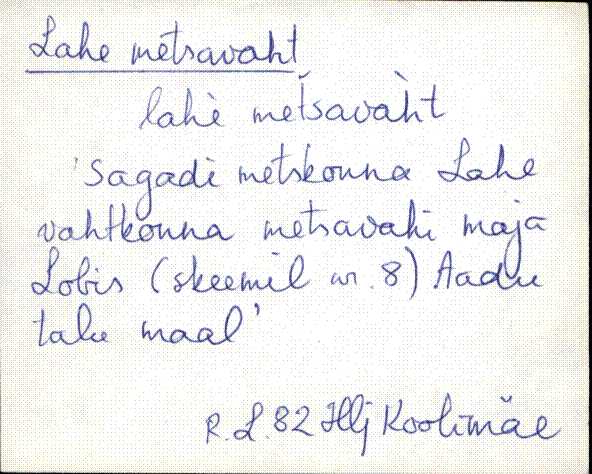 Lahe metsavaht
lahè metsavàht
'Sagadi metskonna Lahe
vahtkonna metsavahi maja
Lobis (skeemil nr. 8) Aadu
talu maal'
R. L. 82 Hlj Koolimäe